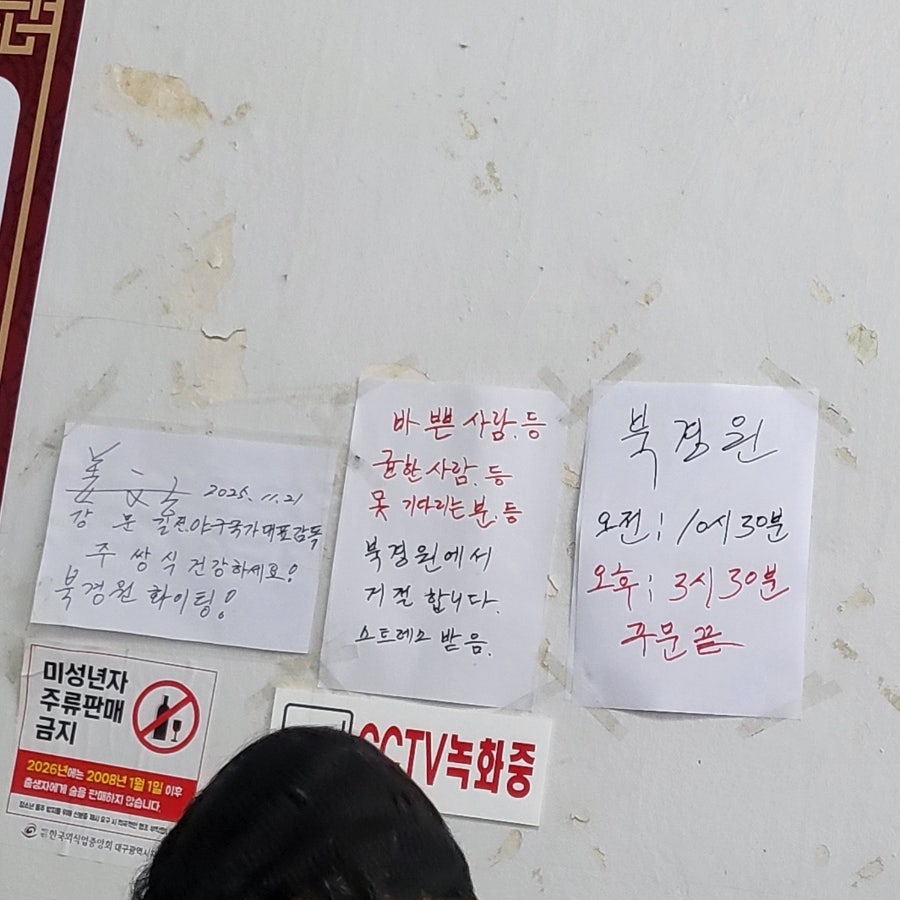 姜文吉 2025. 11. 21
강 문 길 전.야구국가대표감독
주 쌍 식 건강하세요!
북경원 화이팅!
바쁜 사람.등
급한사람.등
못 기다리는분.등
북경원에서
거절합니다.
스트레스받음.
북경원
오전; 10시30분
오후; 3시30분
주문끝
미성년자
주류판매
금지
2026년에는 2008년 1월 1일 이후
출생자에게 술을 판매하지 않습니다.
한국외식업중앙회 대구광역시
CCTV녹화중